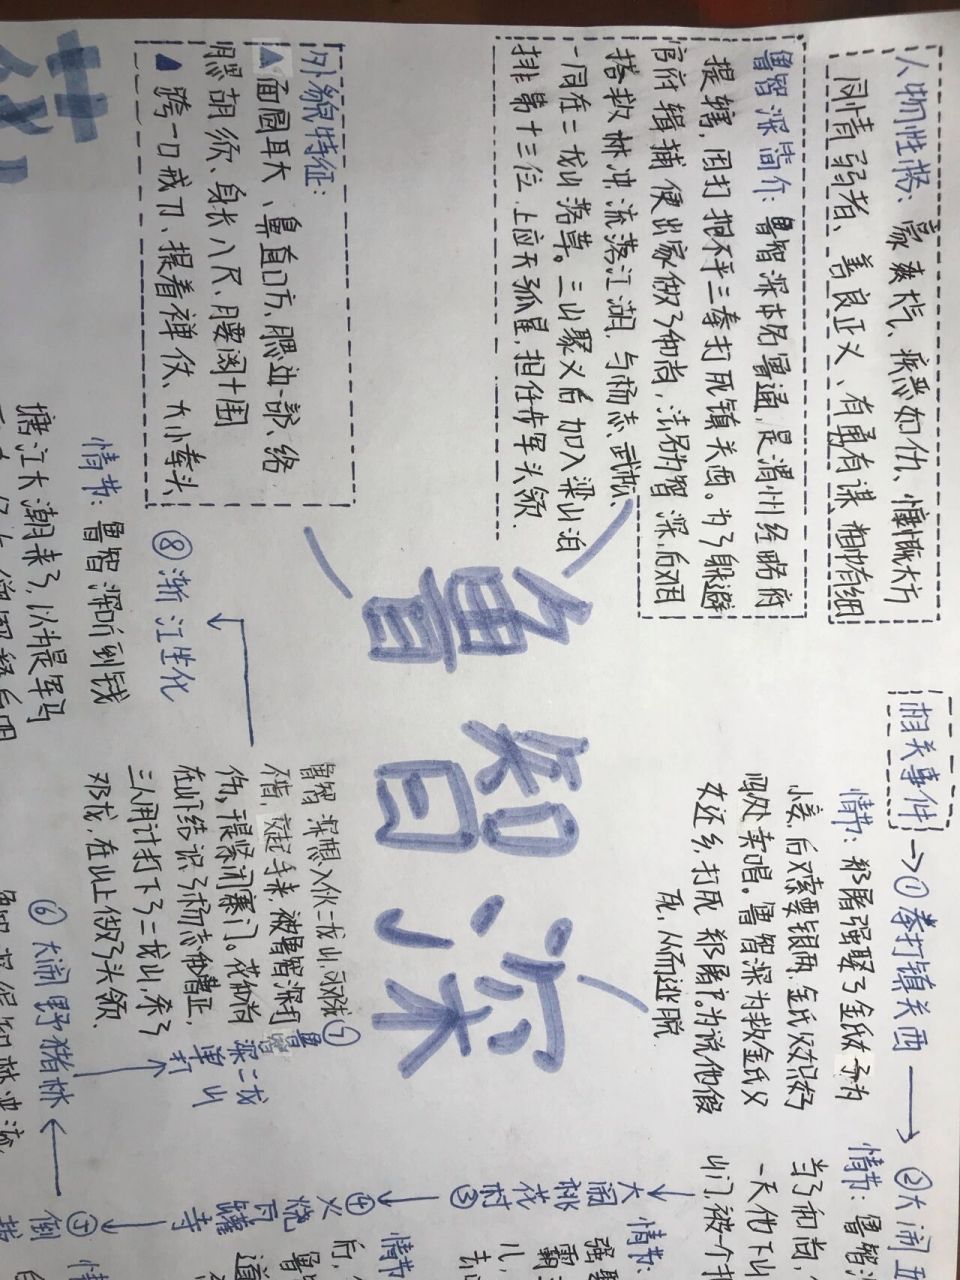 人物性格：豪爽大气、疾恶如仇、慷慨大方
同情弱者、善良正义、有勇有谋 粗中有细
鲁智深简介：鲁智深本名鲁达，是渭州经略府
提辖，因打抱不平三拳打死镇关西。为了躲避
官府缉捕便出家做了和尚，法号智深，后因
搭救林冲，流落江湖，与杨志、武松
一同在二龙山落草。三山聚义后加入梁山泊
排第十三位，上应天孤星，担任步军头领.
外貌特征：
▲面圆耳大、鼻直口方，腮边一部、络
腮胡须、身长八尺、腰阔十围
▲跨一口戒刀、提着禅仗、大小拳头
鲁智深
相关事件→①拳打镇关西
情节：郑屠强娶了金氏女子为
小妾，后又索要银两，金氏父女只好
四处卖唱。鲁智深为救金氏父
女还乡，打死郑屠户。为说他假
死，从而逃脱
②大闹五
情节：鲁智深
当了和尚，
一天他下山
山门，被一个
大闹桃花村③
情节：
强娶
霸
儿，
④火烧瓦罐寺
情节
后，
⑤倒拔
⑥大闹野猪林
鲁智深得知林冲流
⑦鲁智深单打二龙山
鲁智深想入伙二龙山，邓龙
不借，交起手来，被鲁智深
伤，提紧闭寨门。花和尚
在此结识了杨志和曹正，
三人用计打下了二龙山，杀了
邓龙，在山上做了头领.
⑧浙江坐化
情节：鲁智深听到钱
塘江大潮来了，以为是军马